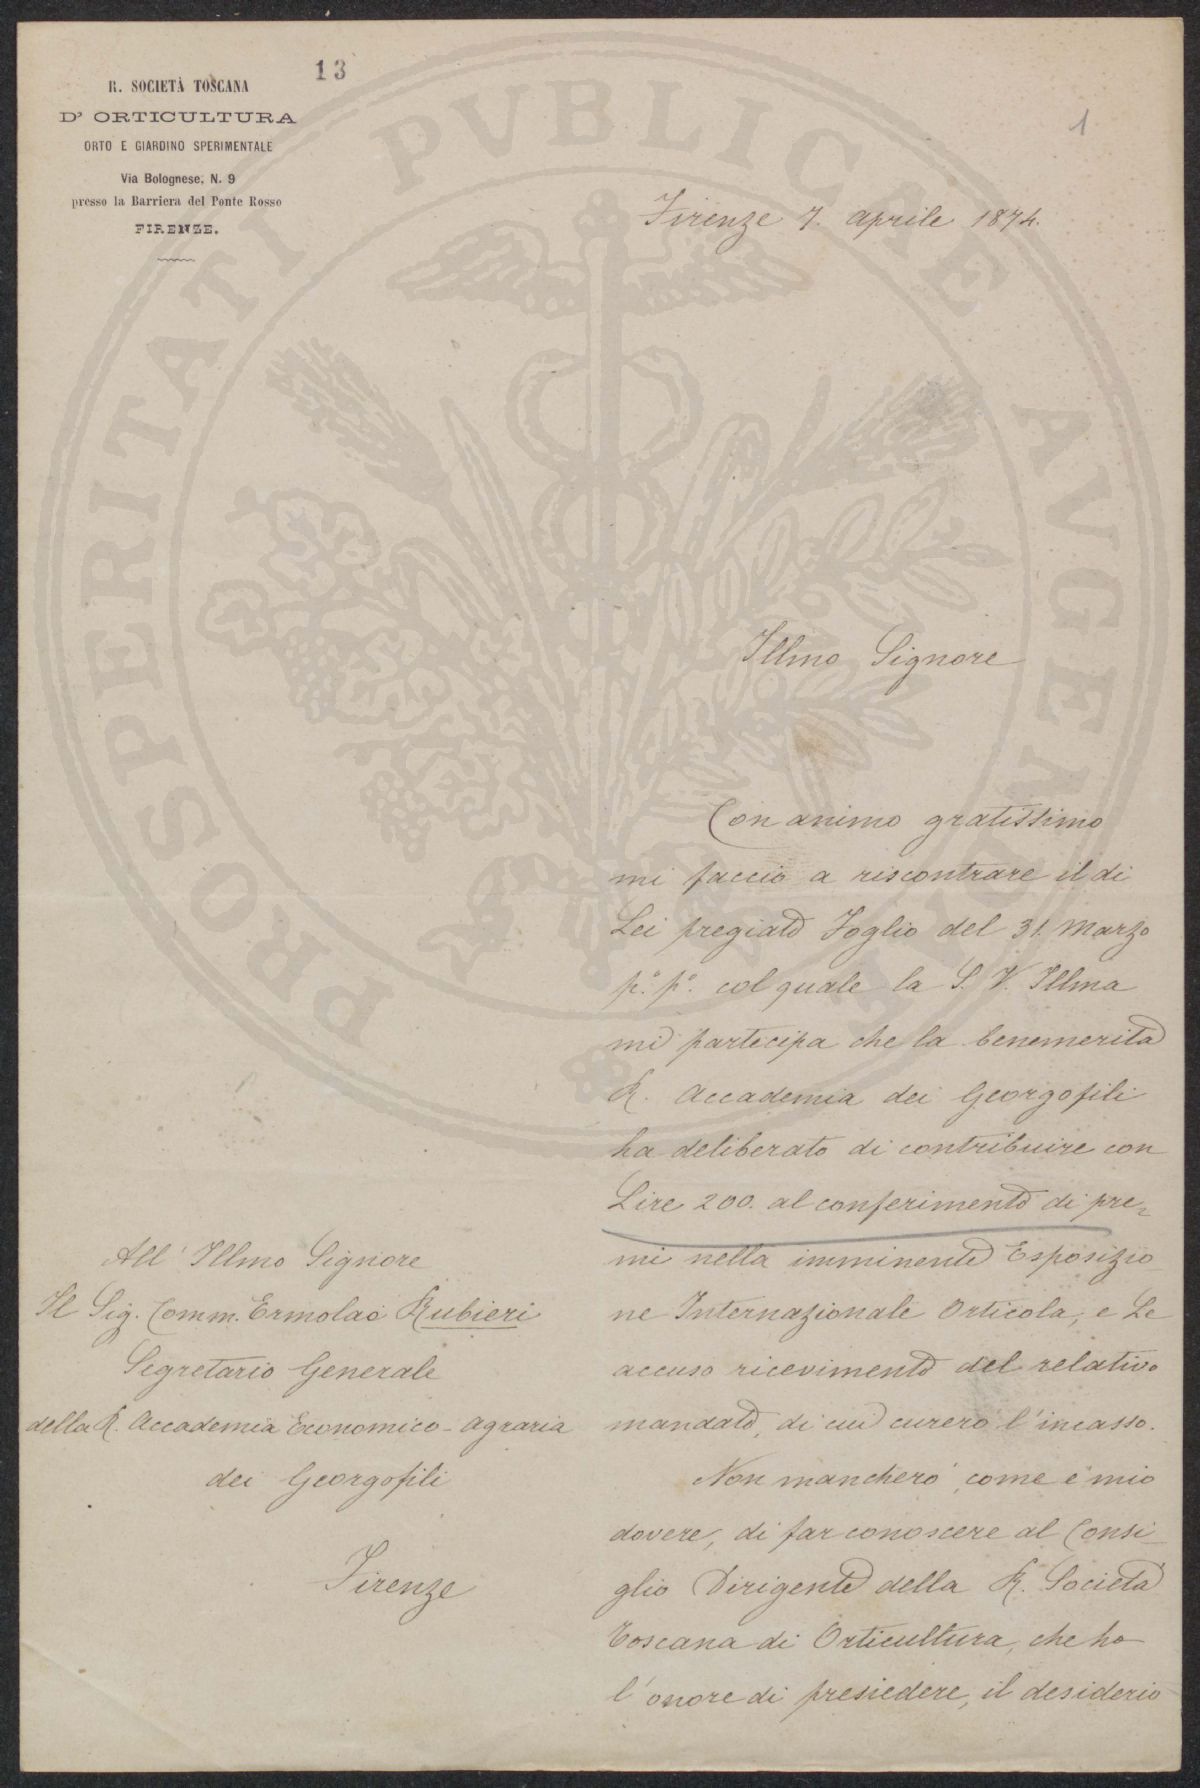 R. SOCIETÀ TOSCANA
D' ORTICULTURA
ORTO E GIARDINO SPERIMENTALE
Via Bolognese, N. 9
presso la Barriera del Ponte Rosso
FIRENZE.
13
1
PROSPERITATI PVBLICAE AVGENDAE
Firenze 7. Aprile 1874.
Illmo Signore
Con animo gratissimo
mi faccio a riscontrare il di
Lei pregiato Foglio del 31. Marzo
p.º p.º col quale la S. V. Illma
mi partecipa che la benemerita
R. Accademia dei Georgofili
ha deliberato di contribuire con
Lire 200. al conferimento di pre=
mi nella imminente Esposizio
ne Internazionale Orticola, e Le
accuso ricevimento del relativo
mandato, di cui curerò l'incasso.
Non mancherò, come è mio
dovere, di far conoscere al Consi
glio Dirigente della R. Società
Toscana di Orticultura, che ho
l'onore di presiedere, il desiderio
All' Illmo Signore
Il Sig. Comm. Ermolao Rubieri
Segretario Generale
della R. Accademia Economico-agraria
dei Georgofili
Firenze